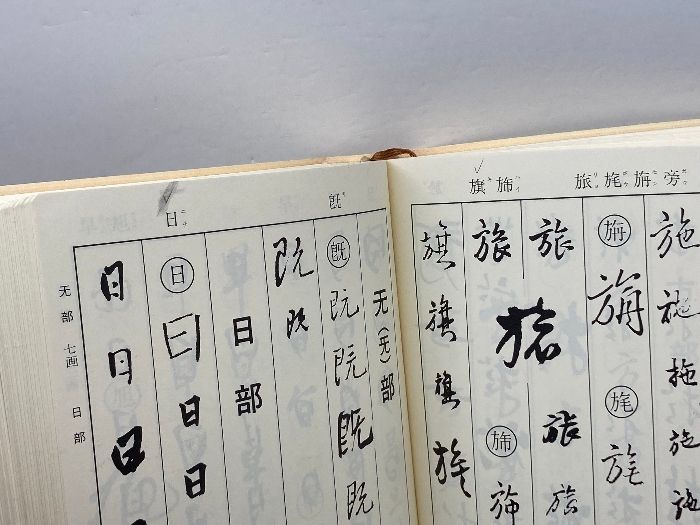 旁旃旄旅
旆旗
施施施施施
旃旃旄旄
旅旅旅
旅
旅旆旆
旗旗旗旗
既
日
无(旡)部
既既既既既
既既
日部
日日日日
日日日
无部 七画 日部